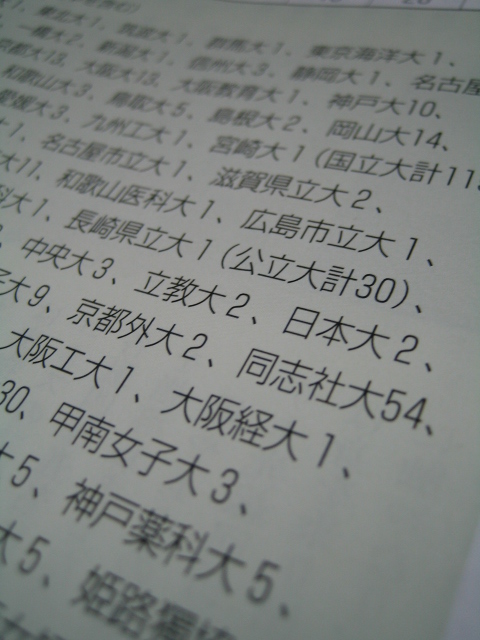 東北大1、筑波大1、群馬大1、東京海洋大1、
一橋大2、新潟大1、信州大3、静岡大1、名古屋
京都大13、大阪大13、大阪教育大1、神戸大10、
和歌山大3、鳥取大5、島根大2、岡山大14、
愛媛大3、九州工大1、宮崎大1(国立大計11
大1、名古屋市立大1、滋賀県立大2、
大11、和歌山医科大1、広島市立大1、
科大1、長崎県立大1(公立大計30)、
中央大3、立教大2、日本大2、
子大9、京都外大2、同志社大54、
大阪工大1、大阪経大1、
30、甲南女子大3、
大5、神戸薬科大5、
大5、姫路獨協